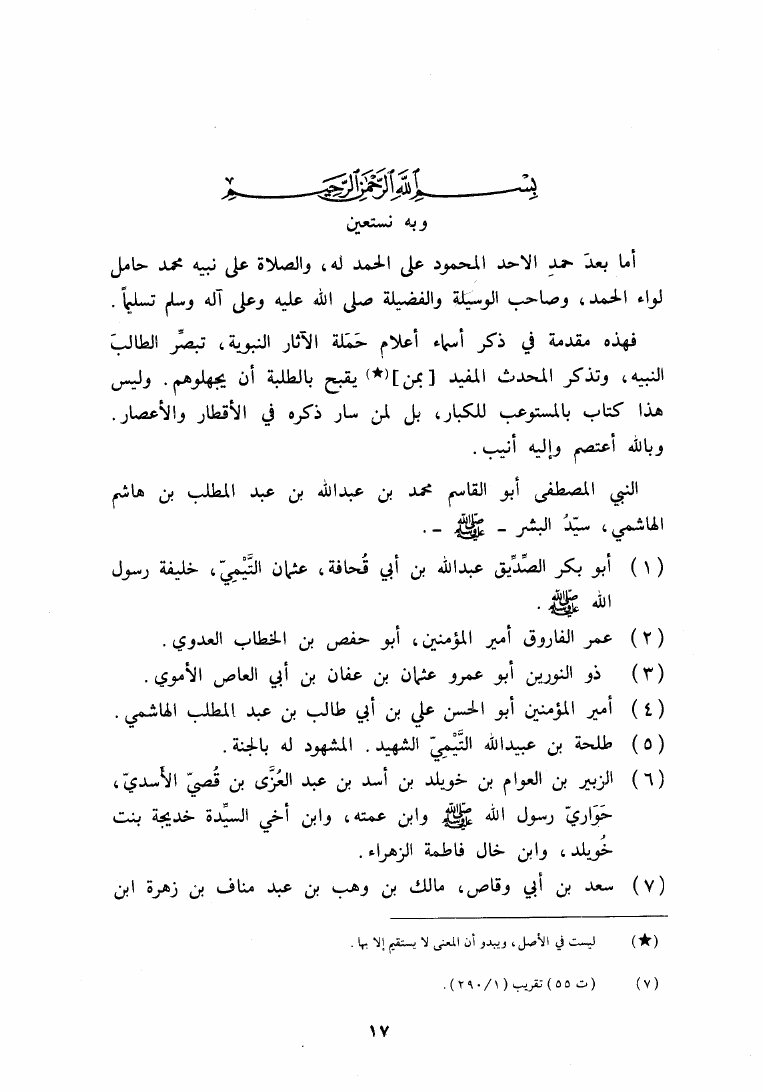 بسم الله الرحمن الرحيم
وبه نستعين
أما بعدَ حمدِ الاحد المحمود على الحمد له، والصلاة على نبيه محمد حامل
لواء الحمد، وصاحب الوسيَلة والفضيلة صلى الله عليه وعلى آله وسلم تسليماً .
فهذه مقدمة في ذكر أسماء أعلام حَمَلة الآثار النبوية، تبصِّر الطالبَ
النبيه، وتذكر المحدث المفيد [بمن](★) يقبح بالطلبة أن يجهلوهم. وليس
هذا كتاب بالمستوعب للكبار، بل لمن سار ذكره في الأقطار والأعصار.
وبالله أعتصم وإليه أنيب.
النبي المصطفى أبو القاسم محمد بن عبدالله بن عبد المطلب بن هاشم
الهاشمي، سيّدُ البشر - ﷺ -.
(١) أبو بكر الصِّدِّيق عبدالله بن أبي قُحافة، عثمان التَّيْمِيّ، خليفة رسول
الله ﷺ .
(٢) عمر الفاروق أمير المؤمنين، أبو حفص بن الخطاب العدوي.
(٣) ذو النورين أبو عمرو عثمان بن عفان بن أبي العاص الأموي.
(٤) أمير المؤمنين أبو الحسن علي بن أبي طالب بن عبد المطلب الهاشمي.
(٥) طلحة بن عبيدالله التَّيْمِيّ الشهيد. المشهود له بالجنة.
(٦) الزبير بن العوام بن خويلد بن أسد بن عبد العُزَّى بن قُصيّ الأسديّ،
حَوَاريّ رسول الله ﷺ وابن عمته، وابن أخي السيِّدة خديجة بنت
خُويلد، وابن خال فاطمة الزهراء.
(٧) سعد بن أبي وقاص، مالك بن وهب بن عبد مناف بن زهرة ابن
(★) ليست في الأصل، ويبدو أن المعنى لا يستقيم إلا بها.
(٧) (ت ٥٥) تقريب (٢٩٠/١).
١٧